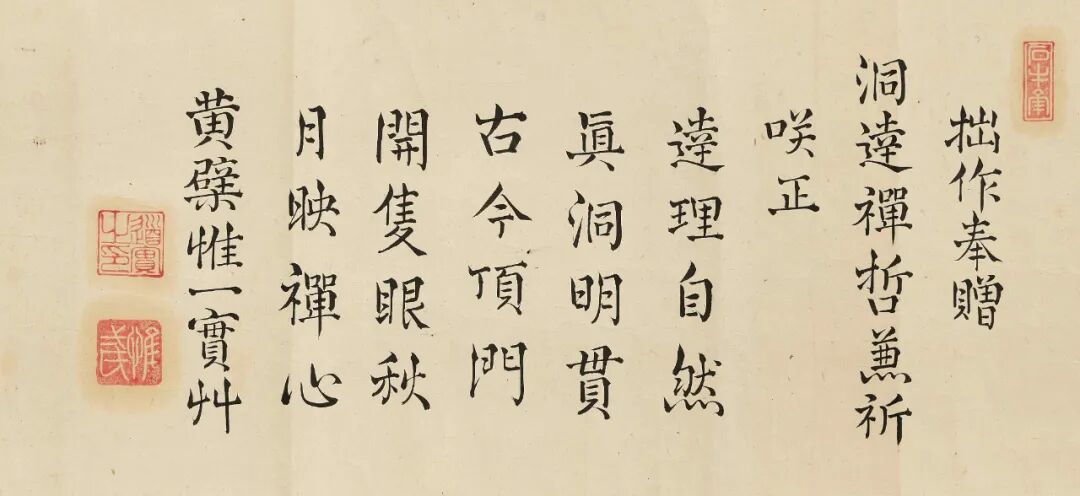 拙作奉贈
洞達禪哲兼祈
咲正
達理自然
眞洞明貫
古今頂門
開隻眼秋
月映禪心
黄檗惟一實艸
道實之印